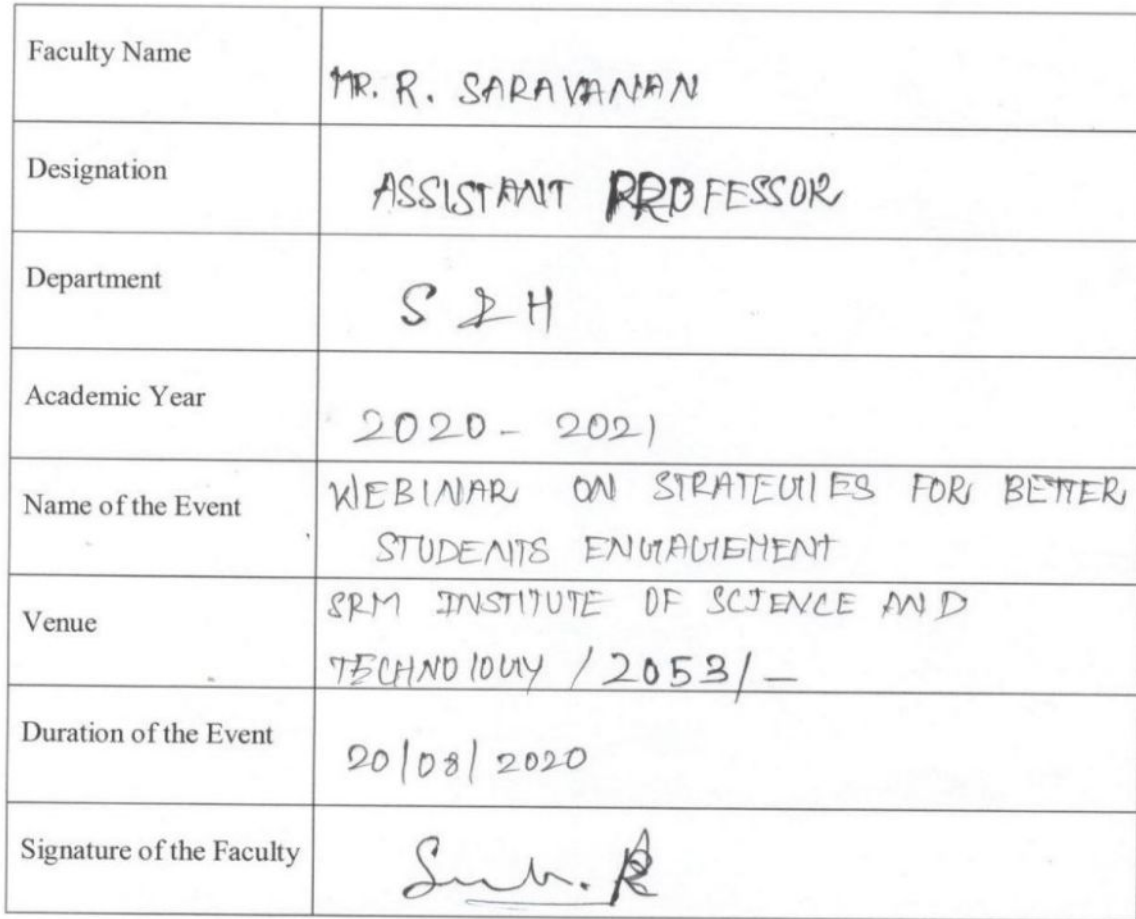 Faculty Name
MR. R. SARAVANAN
Designation
ASSISTANT PROFESSOR
Department
S & H
Academic Year
2020 - 2021
Name of the Event
WEBINAR ON STRATEGIES FOR BETTER
STUDENTS ENGAGEMENT
Venue
SRM INSTITUTE OF SCIENCE AND
TECHNOLOGY / 2053/-
Duration of the Event
20/08/2020
Signature of the Faculty